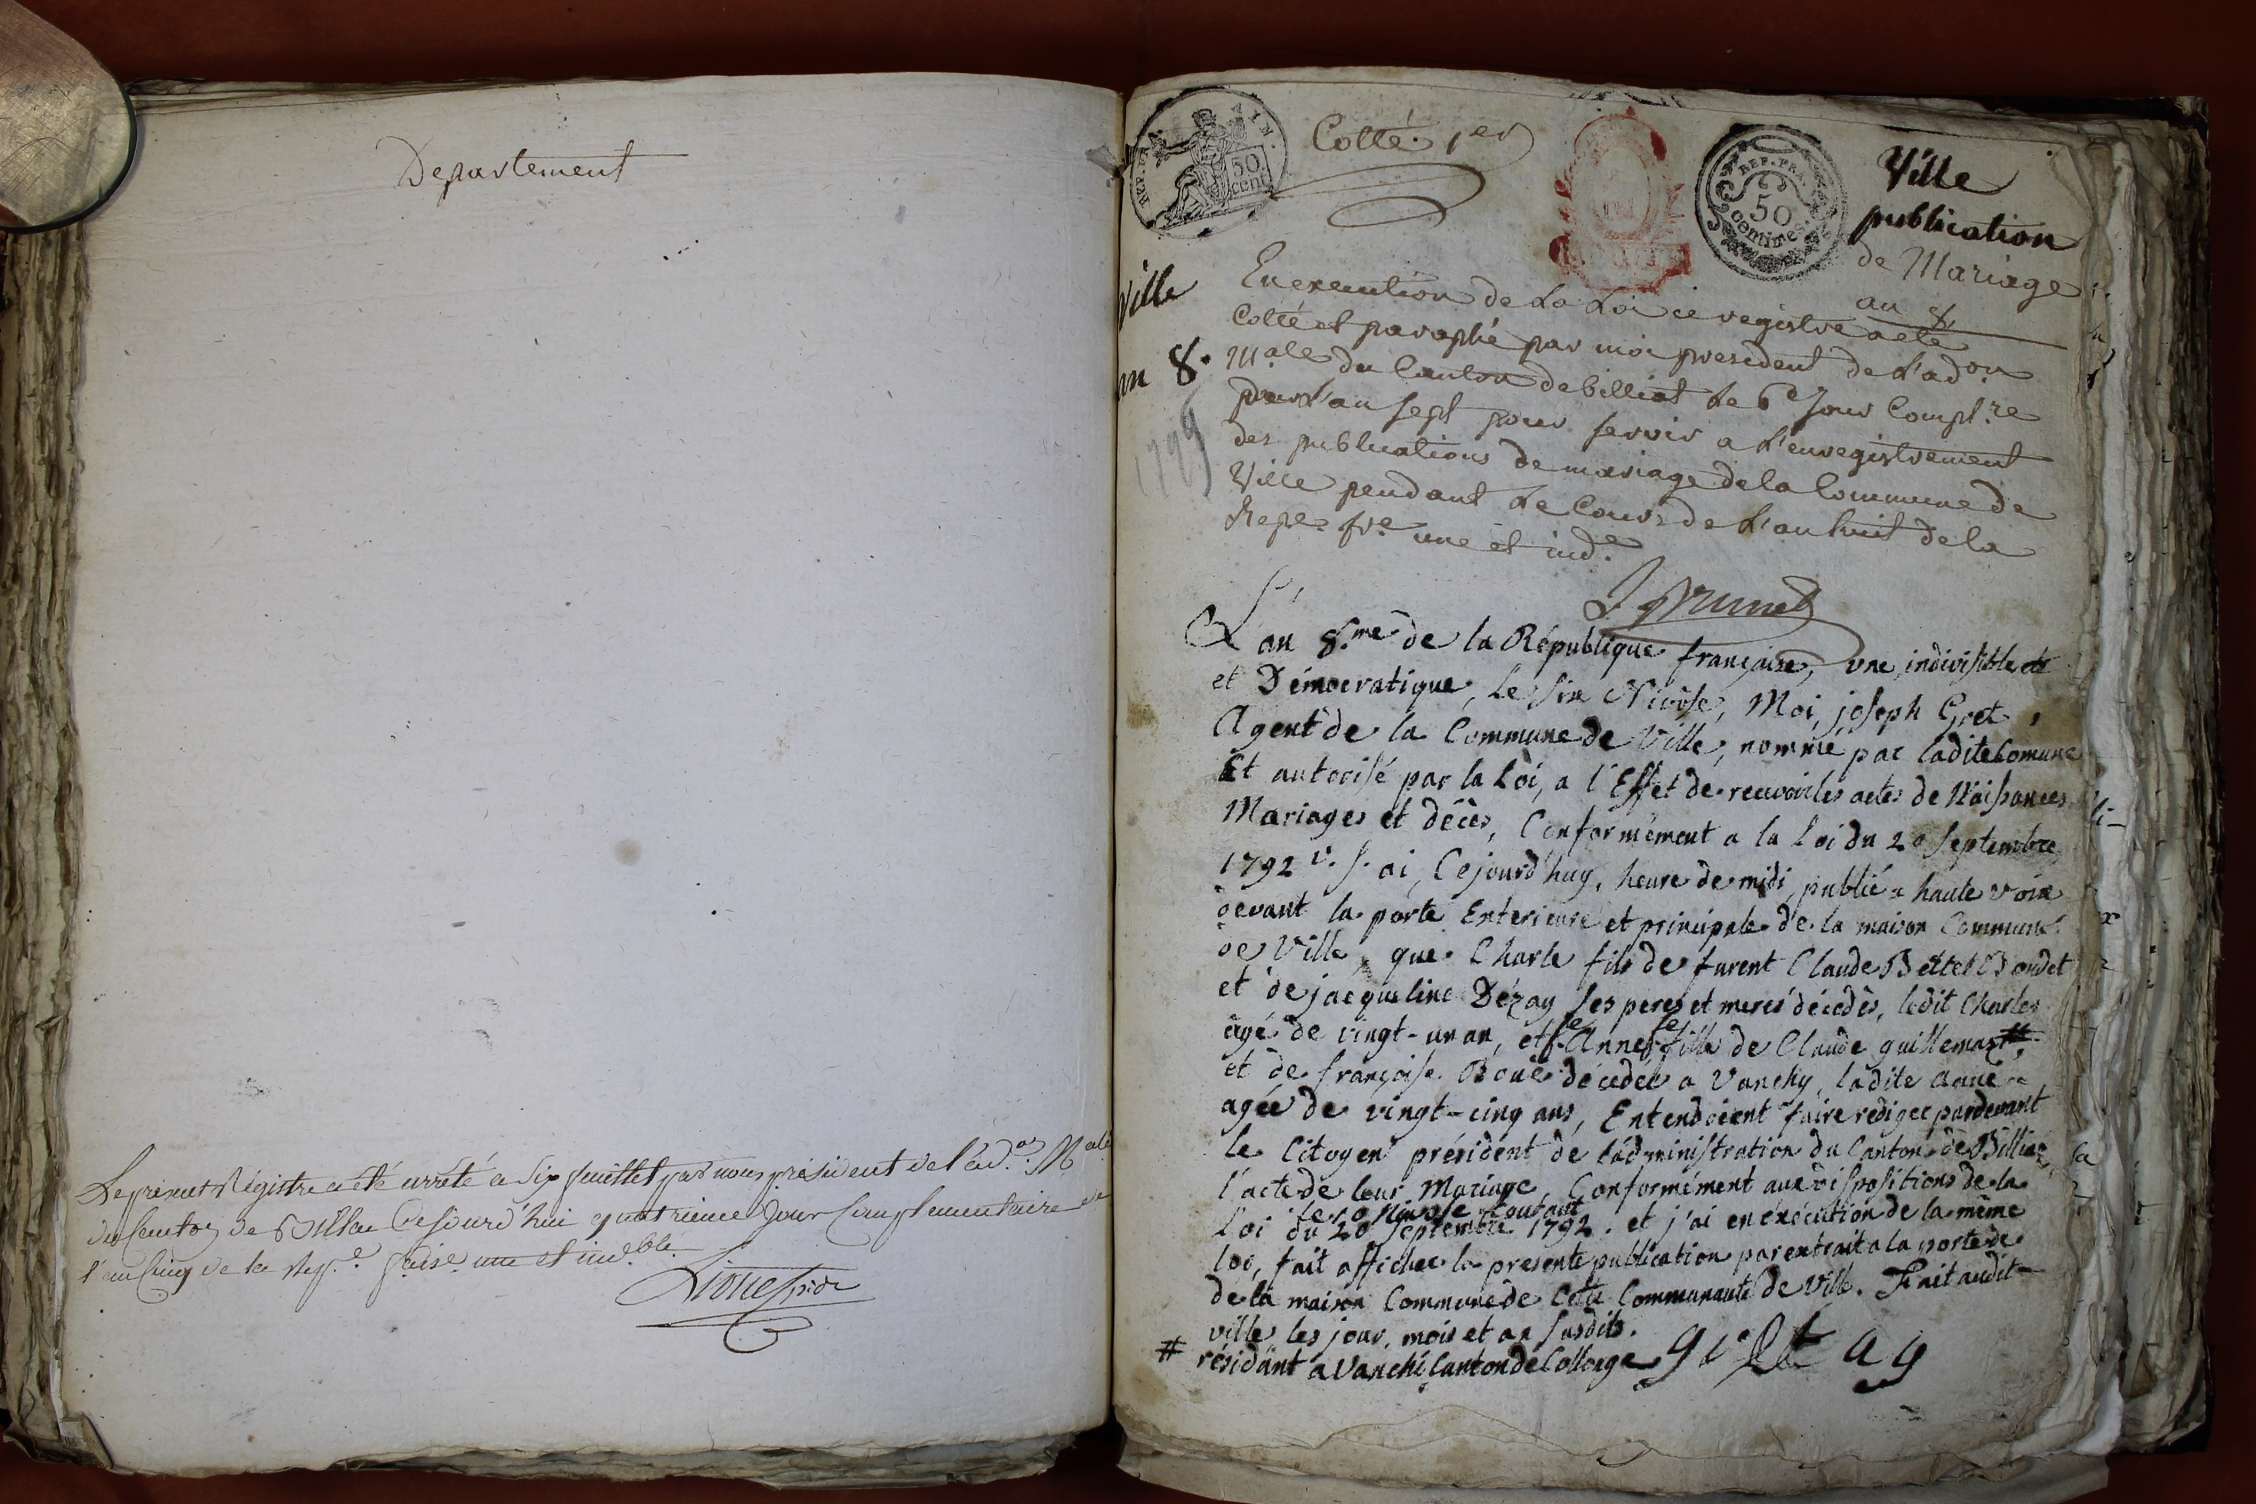 Departement
Le present Régistre a été arrété a six feuillet par nous président de l'ad.on M.ale
du Canton de Billiat Ce Jourd'hui quatrieme Jour Complementaire de
l'an Cinq de la Rep.e fçaise une et ind.ble
REP. FRA.
50
cent.
Cotté 1er
REP. FRA.
50
centimes
Ville
publication
de Mariage
an 8.
Ville
an 8.
1799
En execution de La Loi ce registre a eté
Cotté et paraphé par moi president de L'ad.on
M.ale du Canton de billiat Le 6e Jour Compl.re
de L'an sept pour servir a L'enregistrement
des publications de mariage de la Commune de
Ville pendant Le Cours de L'an huit de la
Repe. fse. une et ind.e
J Brunet
L'an 8.me de la République française, une indivisible
et Démocratique, Le six Nivôse, Moi, joseph Gret,
Agent de la Commune de Ville, nommé par ladite Comune
Et autorisé par la Loi, a l'Effet de recevoir les actes de Naissances
Mariages et décès, Conformément a la Loi du 20 Septembre
1792 v. s. ai, Cejourd'huy, heure de midi, publié a haute voix
devant la porte Exterieure et principale de la maison Commune
de Ville, que Charle fils de furent Claude Bettet Bondet
et de jacqueline Dézay ses peres et meres décedés, ledit Charles
âgé de vingt-un an, et Anne fille de Claude guillemat #
et de françoise Boué décedée a Vanchy, ladite anne
agée de vingt-cinq ans, Entendoient faire rediger pardevant
le Citoyen président de l'administration du Canton de Billiaz,
l'acte de leur Mariage, Conformément aux dispositions de la
le 10 Nivose Courant
Loi du 20 Septembre 1792. et j'ai en exécution de la même
loi, fait afficher la presente publication par extrait a la porte de
de la maison Commune de Cette Communauté de Ville. Fait audit
ville les jour, mois et an susdits.
# résidant a Vanchi Canton de Collonge Gret ag